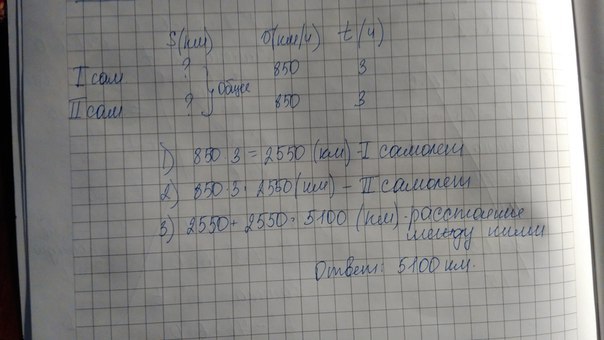 S(км) υ(км/ч) t(ч)
I сам ? } Общее 850 3
II сам ? 850 3
1) 850 · 3 = 2550 (км) - I самолет
2) 850 · 3 = 2550 (км) - II самолет
3) 2550 + 2550 = 5100 (км) - расстояние
между ними
Ответ: 5100 км.